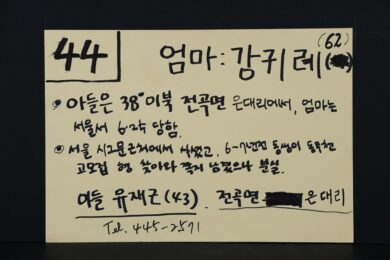 44
엄마: 강귀례 (62)
아들은 38°이북 전곡면 은대리에서, 엄마는
서울서 6.25 당함.
서울 시구문근처에서 사셨고, 6~7년전 동생이 동두천
고모집 형 찾아와 쪽지 남겼으나 분실.
아들 유재근 (43). 전곡면 은대리
Tel. 445-2571